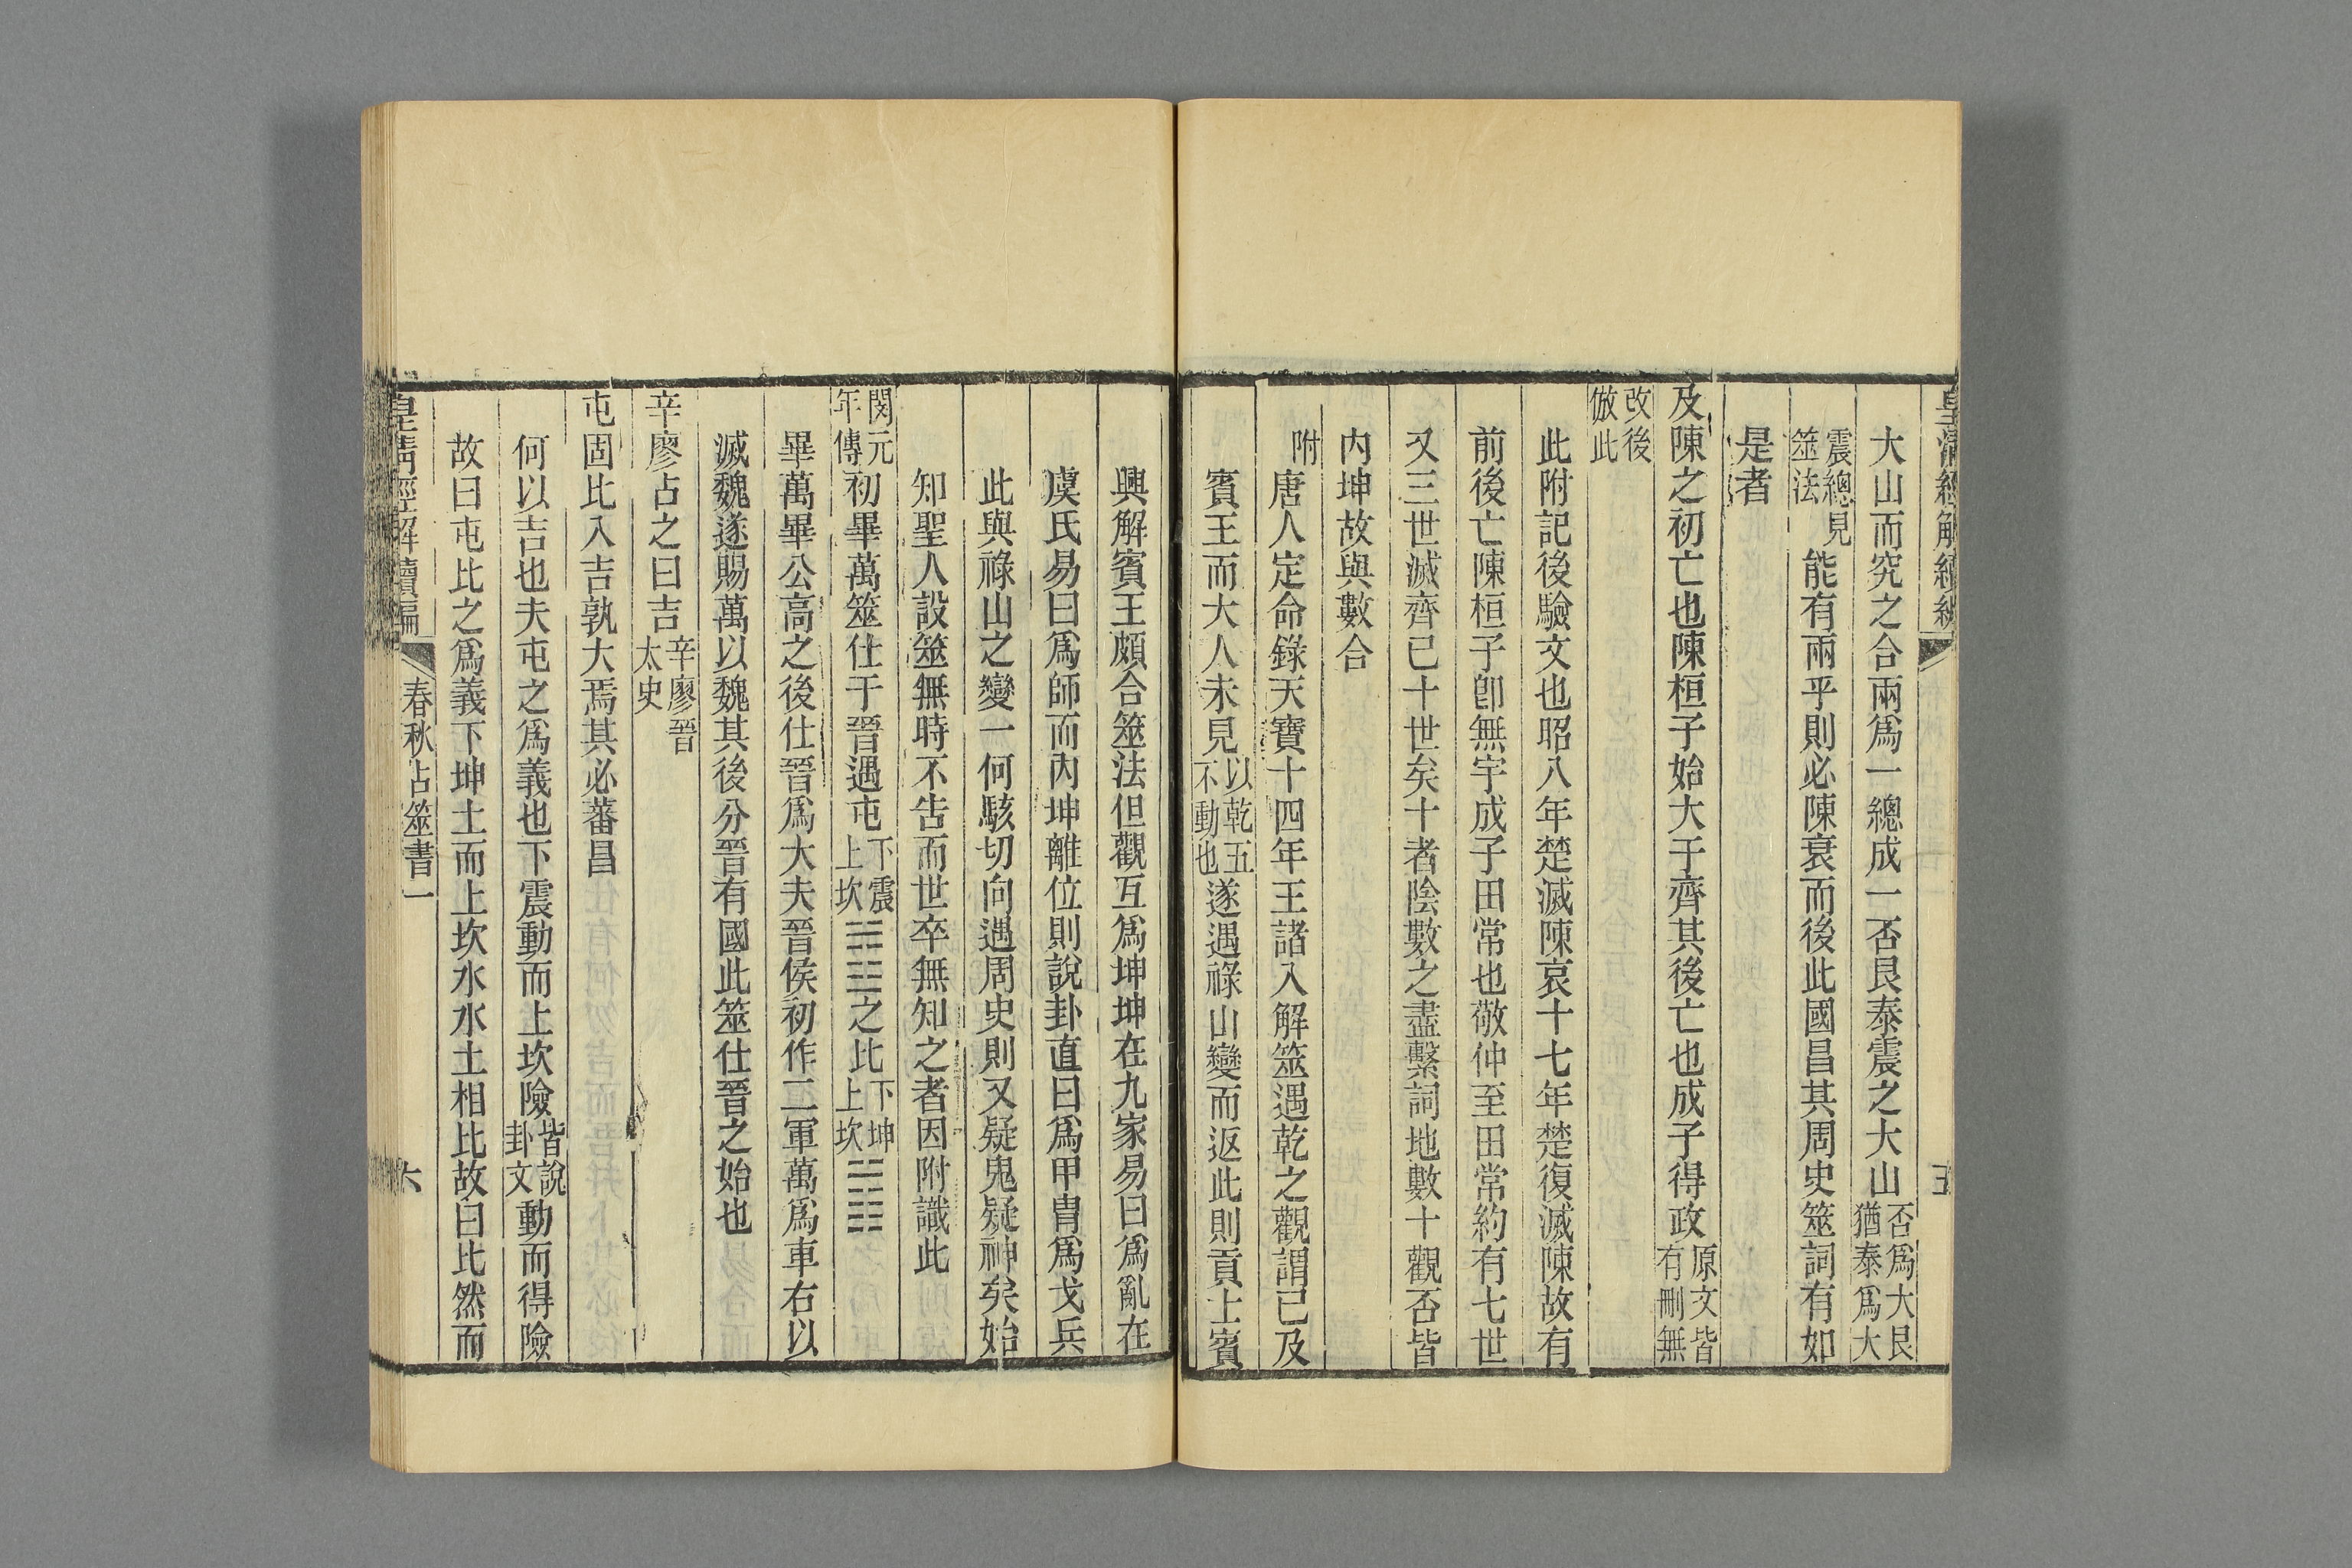 皇淸經解續編
五
大山而究之合兩爲一總成一否艮泰震之大山否爲大艮猶泰爲大
震總見筮法能有兩乎則必陳衰而後此國昌其周史筮詞有如
是者
及陳之初亡也陳桓子始大于齊其後亡也成子得政原文皆有刪無
改後倣此
此附記後驗文也昭八年楚滅陳哀十七年楚復滅陳故有
前後亡陳桓子卽無宇成子田常也敬仲至田常約有七世
又三世滅齊已十世矣十者陰數之盡繫詞地數十觀否皆
內坤故與數合
附唐人定命錄天寶十四年王諸入解筮遇乾之觀謂已及
賓王而大人未見以乾五不動也遂遇祿山變而返此則貢士賓
興解賓王頗合筮法但觀互爲坤坤在九家易曰爲亂在
虞氏易曰爲師而內坤離位則說卦直曰爲甲冑爲戈兵
此與祿山之變一何駭切向遇周史則又疑鬼疑神矣始
知聖人設筮無時不吿而世卒無知之者因附識此
閔元年傳初畢萬筮仕于晉遇屯下震上坎☳☵之比下坤上坎☷☵
畢萬畢公高之後仕晉爲大夫晉侯初作二軍萬爲車右以
滅魏遂賜萬以魏其後分晉有國此筮仕晉之始也
辛廖占之曰吉辛廖晉太史
屯固比入吉孰大焉其必蕃昌
何以吉也夫屯之爲義也下震動而上坎險皆說卦文動而得險
故曰屯比之爲義下坤土而上坎水水土相比故曰比然而
皇淸經解續編
春秋占筮書一
六